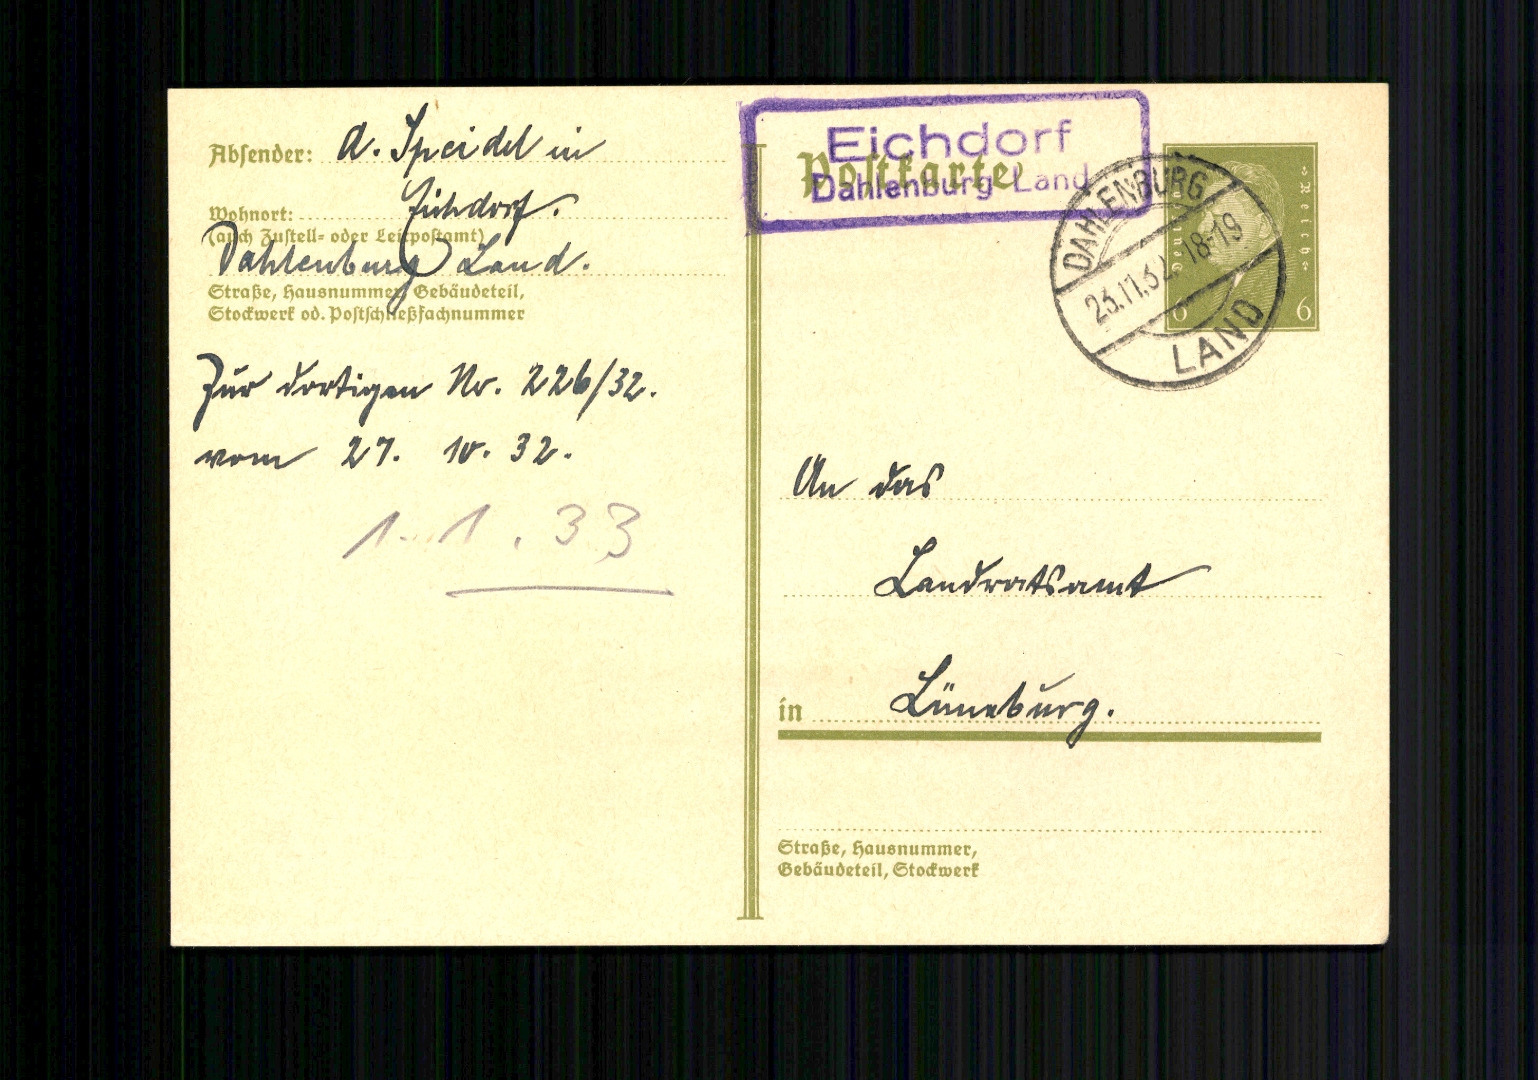 Absender: A. Speidel in
Wohnort: Eichdorf.
(auch Zustell- oder Leitpostamt)
Dahlenburg Land.
Straße, Hausnummer, Gebäudeteil,
Stockwerk od. Postschließfachnummer
Zur dortigen Nr. 226/32.
vom 27. 10. 32.
1. 1. 33
Postkarte
Eichdorf
Dahlenburg Land
DAHLENBURG
23.11.32. 18-19
LAND
Reich
6 6
An das
Landratsamt
in Lüneburg.
Straße, Hausnummer,
Gebäudeteil, Stockwerk